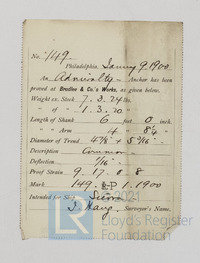 No. 1149
Philadelphia, January 9. 1900
An Admiralty Anchor has been
proved at Bradlee & Co.'s Works, as given below.
Weight ex. Stock 7. 3. 24 lbs.
" of " 1. 3. 20 "
Length of Shank 6 feet 0 inch.
" " Arm 4 8¼ "
Diameter of Trend 4⅞ + 5 3/16 "
Description Common
Deflection 1/16
Proof Strain 9. 17. 0. 8
Mark 149. B-D 1. 1900
Intended for Ship
J. Haug, Surveyor's Name.
© 2021
Lloyd's Register
Foundation